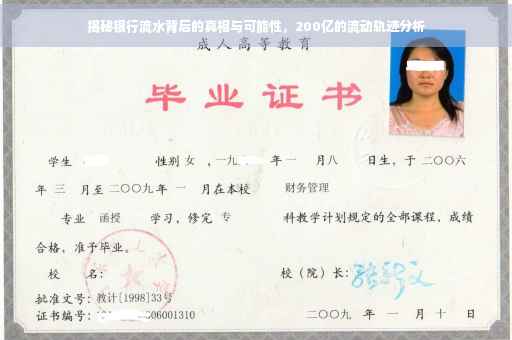 揭秘银行流水背后的真相与可能性，200亿的流动轨迹分析
成人高等教育
毕业证书
学生 性别 女 ，一九 年一 月八 日生，于二〇〇六
年 三 月至二〇〇九年 一 月在本校 财务管理
专业 函授 学习，修完 专 科教学计划规定的全部课程，成绩
合格，准予毕业。
校 名： 校（院）长：
批准文号：教计[1998]33号
证书编号： 06001310 二〇〇九 年 一 月 十 日